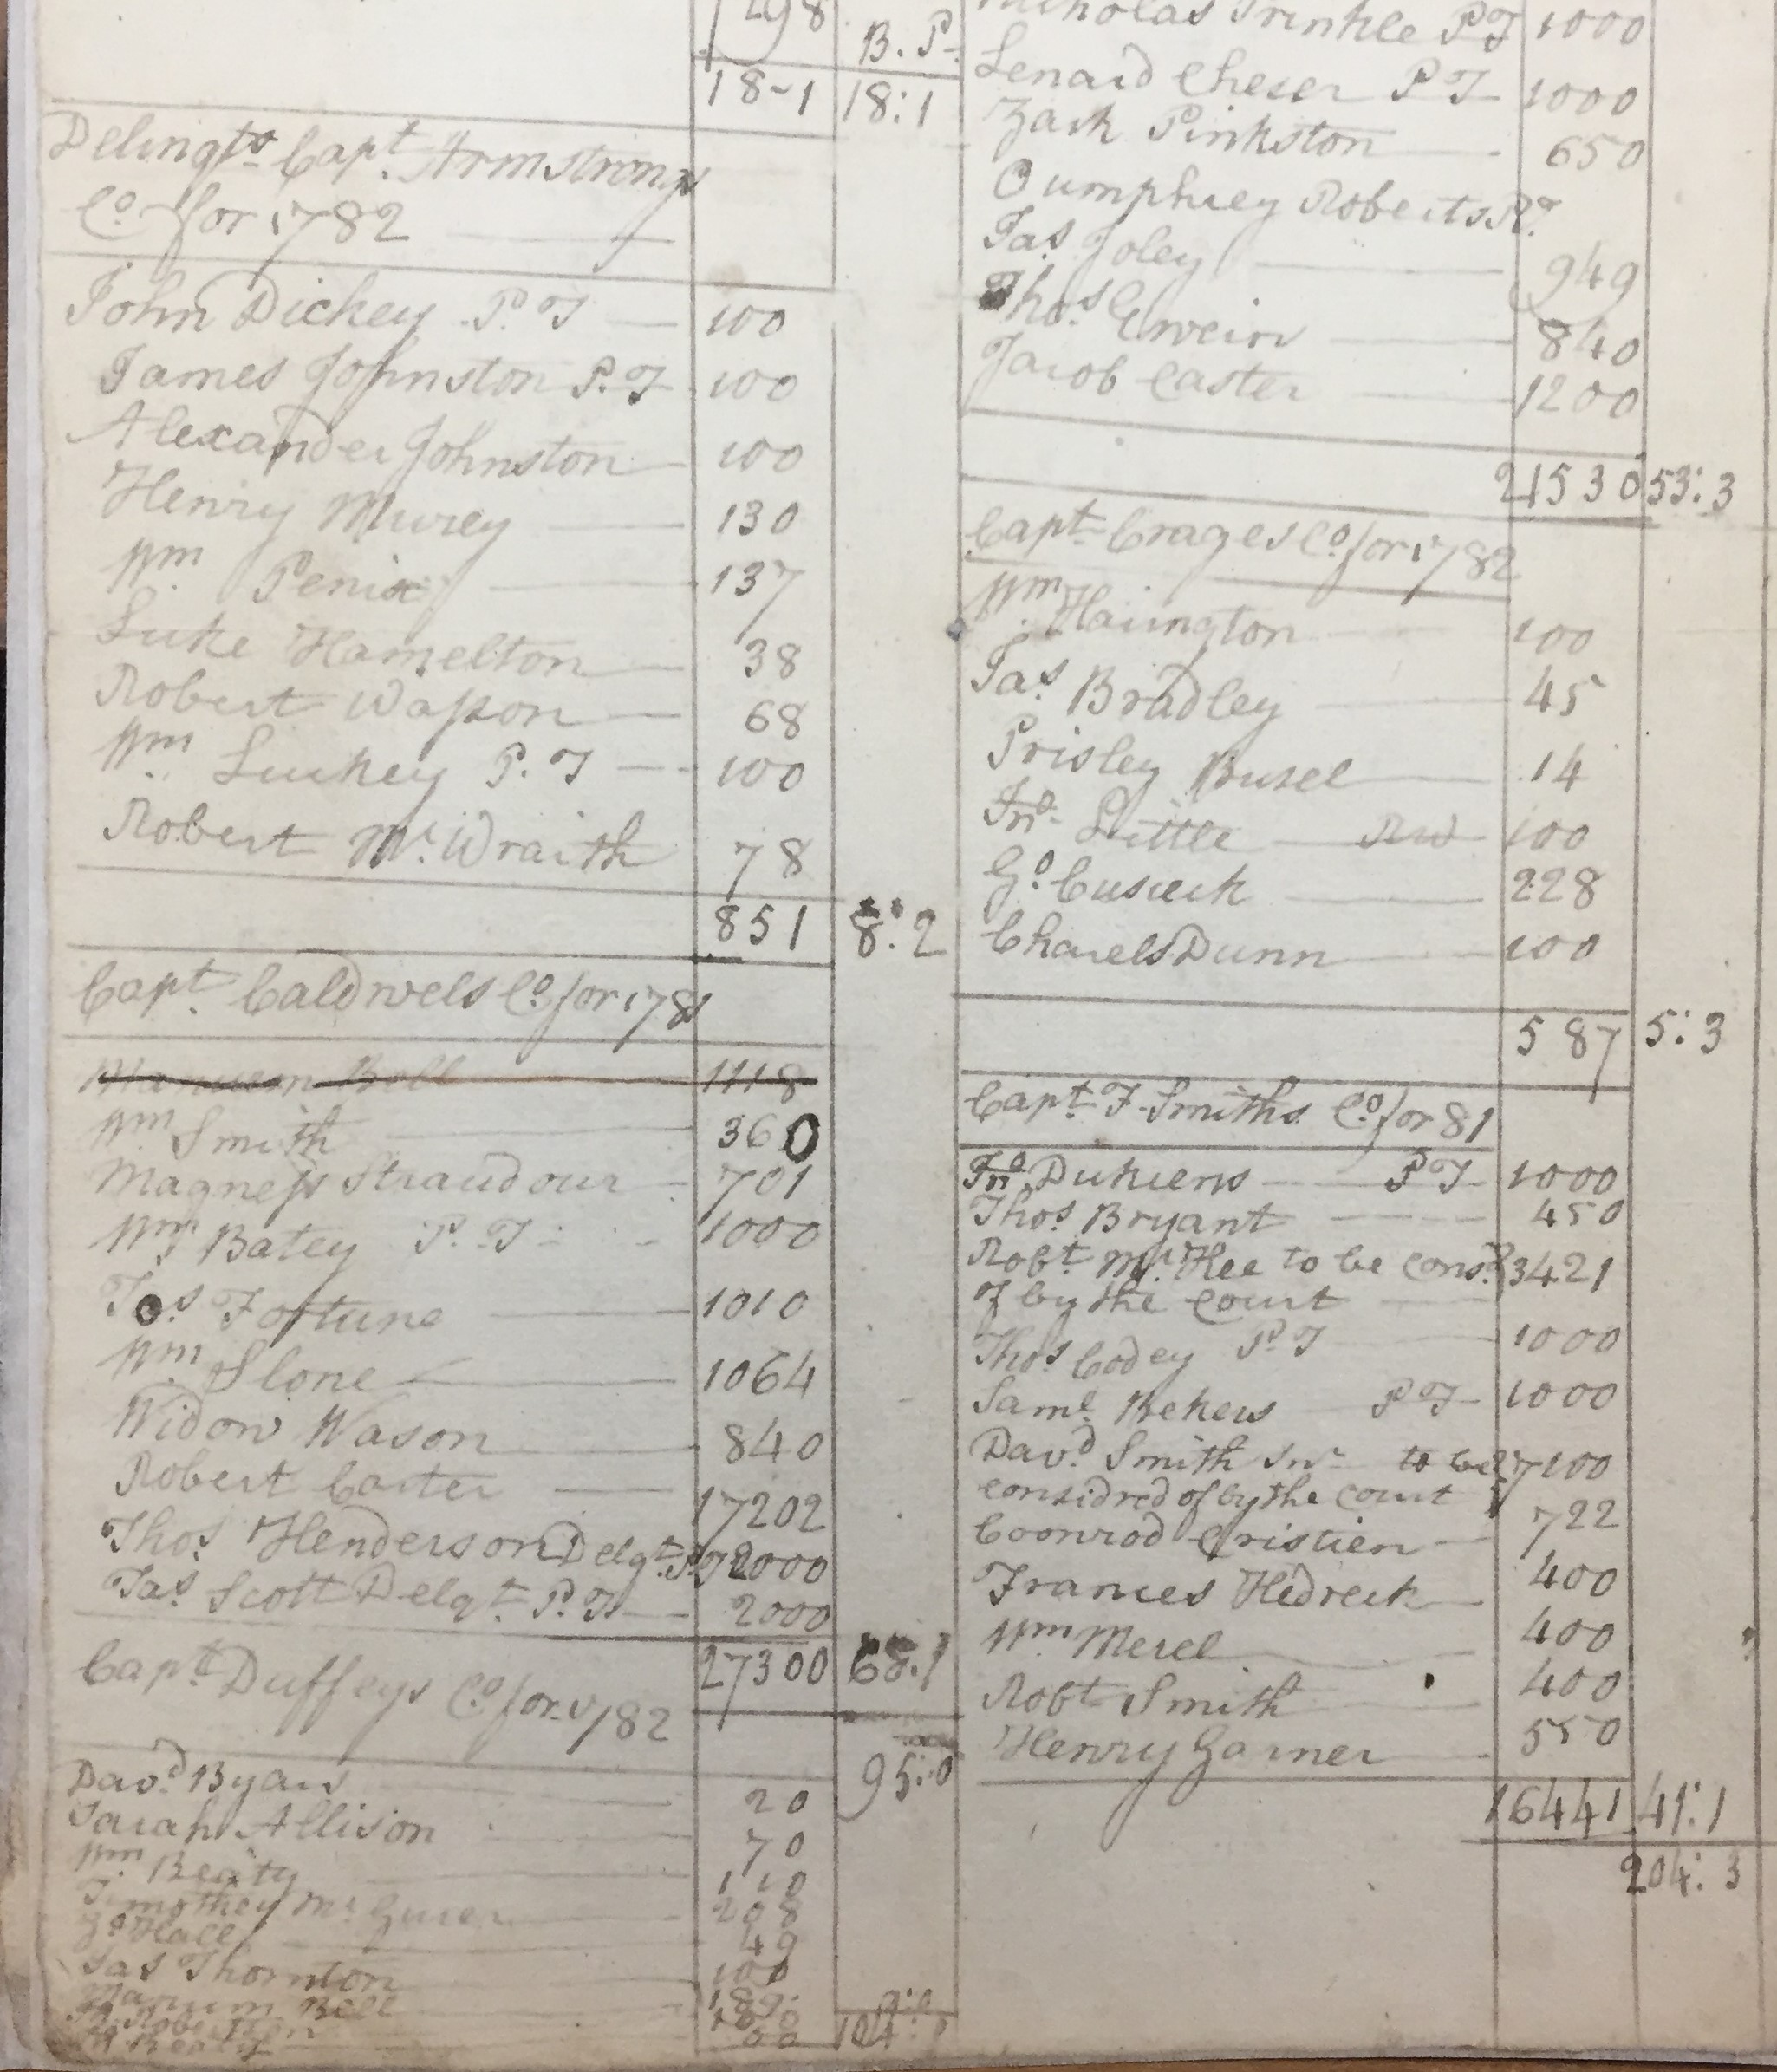 1298 B. P.
18-1 18:1
Delingts Capt. Armstrongs
Co. for 1782
John Dickey P. T 100
James Johnston P. T 100
Alexander Johnston 100
Henry Murey 130
Wm. Penix 137
Luke Hamelton 38
Robert Wasson 68
Wm. Luckey P. T 100
Robert Mc. Wraith 78
851 8:2
Capt. Caldwels Co. for 1781
Bell 1118
Wm. Smith 360
Magness Straudour 701
Wm. Batey P. T 1000
Jos. Fortune 1010
Wm. Slone 1064
Widow Wason 840
Robert Carter 17202
Thos. Henderson Delqt. P. T 2000
Jas. Scott Delqt. P. T 2000
27300 68.1
Capt. Duffeys Co. for 1782
95:0
Davd. Byars 20
Sarah Allison 70
Wm. Beaty 110
Timothey Mc. 208
Go. Hall 49
Jas Thornton 100
Bell
Beaty
104:
Nicholas Trinkle P T 1000
Lenard Cheser P T 1000
Zack Pinkston 650
Oumphrey Roberts P. T.
Jas. Joley 949
Thos. Erwein 840
Jacob Caster 1200
21530 53:3
Capt. Crages Co. for 1782
Wm. Harington 100
Jas. Bradley 45
Prisley Busel 14
Jno. Little 100
Go. Cusick 228
Charels Dunn 100
587 5:3
Capt. F. Smiths Co. for 81
Jno Dukiens P T 1000
Thos. Bryant 450
Robt. Mc. Kee to be consd. 3421
of by the Court
Thos. Codey P. T 1000
Saml. Bekers P T 1000
Davd. Smith Snr to be 7100
considred of by the Court
Coonrod Cristien 722
Frances Hedreck 400
Wm Merel 400
Robt Smith 400
Henry Garner 550
16441 41:1
204:3